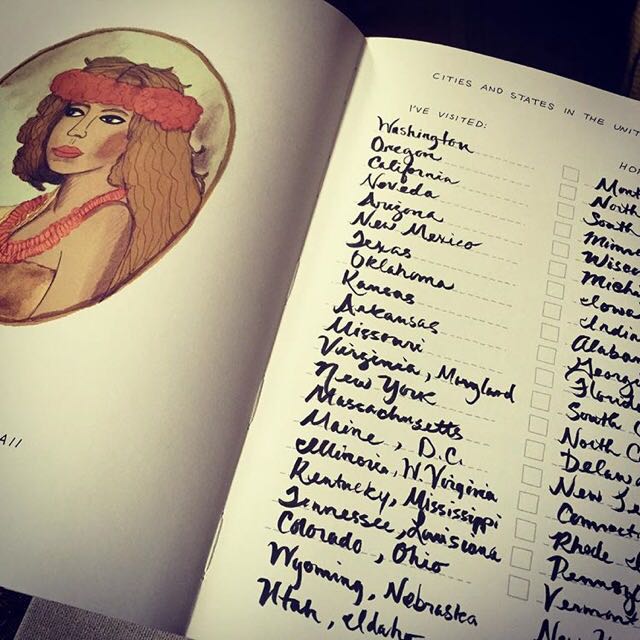 AII
CITIES AND STATES IN THE UNIT
I'VE VISITED:
Washington
Oregon
California
Noveda
Arizona
New Mexico
Texas
Oklahoma
Kansas
Arkansas
Missouri
Virginia, Maryland
New York
Massachusetts
Maine, D.C.
Illinois, W. Virginia
Kentucky, Mississippi
Tennessee, Louisiana
Colorado, Ohio
Wyoming, Nebraska
Utah, Idaho
HO
Mont
North
South
Minne
Wisco
Michi
Iowa
India
Alabam
Georgi
Florid
South C
North C
Delawa
New Je
Connecti
Rhode I
Pennsyl
Vermon
New H